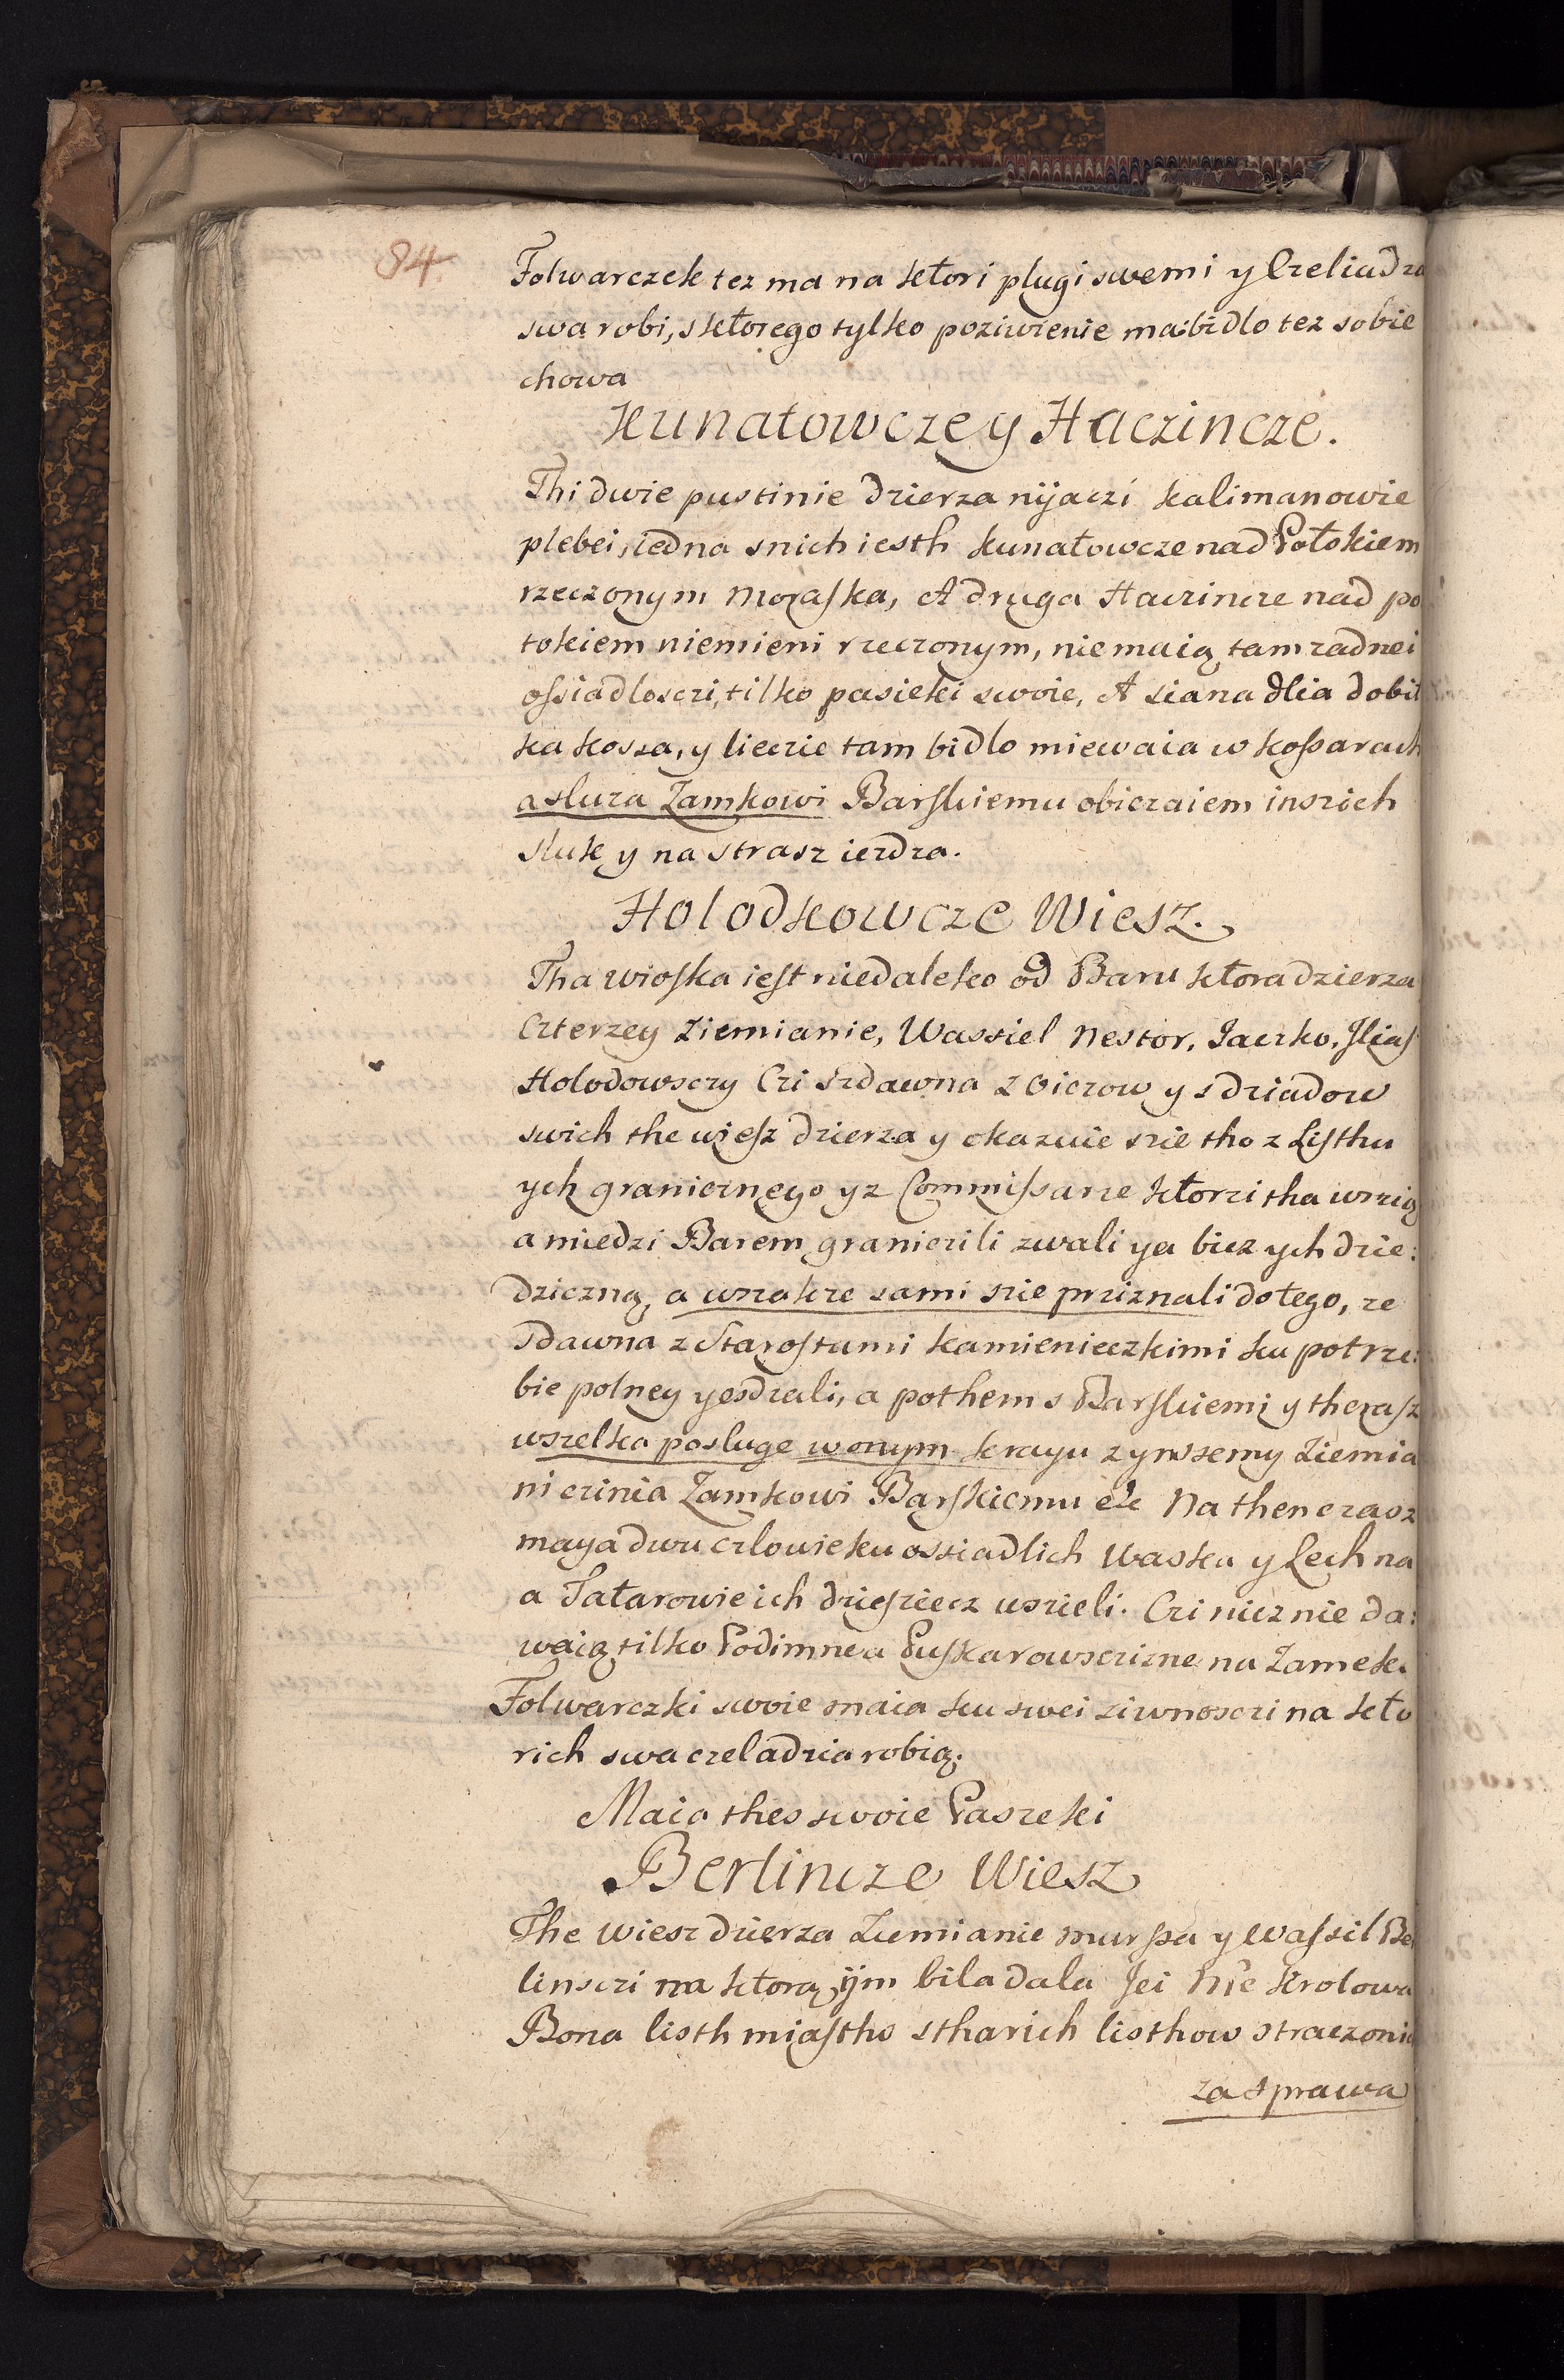 84
Folwarczek tez ma na ktori plugi swemi y Czeliadza
swa robi, sktorego tylko poziwienie ma: bidlo tez sobie
chowa
Kunatowcze y Haczincze.
Thi dwie pustinie dzierza nijaczi Kalimanowie
plebei, iedna snich iesth Kunatowcze nad Potokiem
rzeczonym Moraska, A druga Haczincze nad po
tokiem niemieni rzeczonym, nie maią tam zadnei
ossiadlosczi, tilko pasieki swoie, A siana dlia dobit
ka kosza, y lieczie tam bidlo miewaia w kossarach
a sluza Zamkowi Barskiemu obiczaiem inszich
sluk y na strasz iezdza.
Holodkowcze Wiesz.
Tha wioska iest niedaleko od Baru ktora dzierza
Czterzey Ziemianie, Wassiel Nestor, Iaczko, Ilias
Holodowsczy Czi Szdawna z Oiczow y sdziadow
swich the wiesz dzierza y okazuie szie tho z Listhu
ych granicznego yz Commissarze ktorzi tha wszią
a miedzi Barem graniczili zwali ya bicz ych dzie:
dziczną, a wszakze sami szie prziznali do tego, ze
Sdawna z Starostami kamienieczkimi ku potrze:
bie polney yesdzali, a pothem s Barskiemi y therasz
wszelka posluge w onym krayu z ynszemy Ziemia
ni czinia Zamkowi Barskiemu etc Na then czasz
maya dwu czlowieku ossiadlich Waska y Lechna
a Tatarowie ich dziesziecz wszieli. Czi nicz nie da:
waią, tilko Podimne a Puskarowsczizne na Zamek.
Folwarczki swoie maia ku swei ziwnosczi na kto
rich swa czeladzia robią.
Maia thes swoie Paszeki
Berlincze Wiesz
The wiesz dzierza Ziemianie mursza y Wassil Be
linsczi na ktorą ijm bila dala Jei Mc Krolowa
Bona listh miastho stharich listhow straczonich
za sprawa